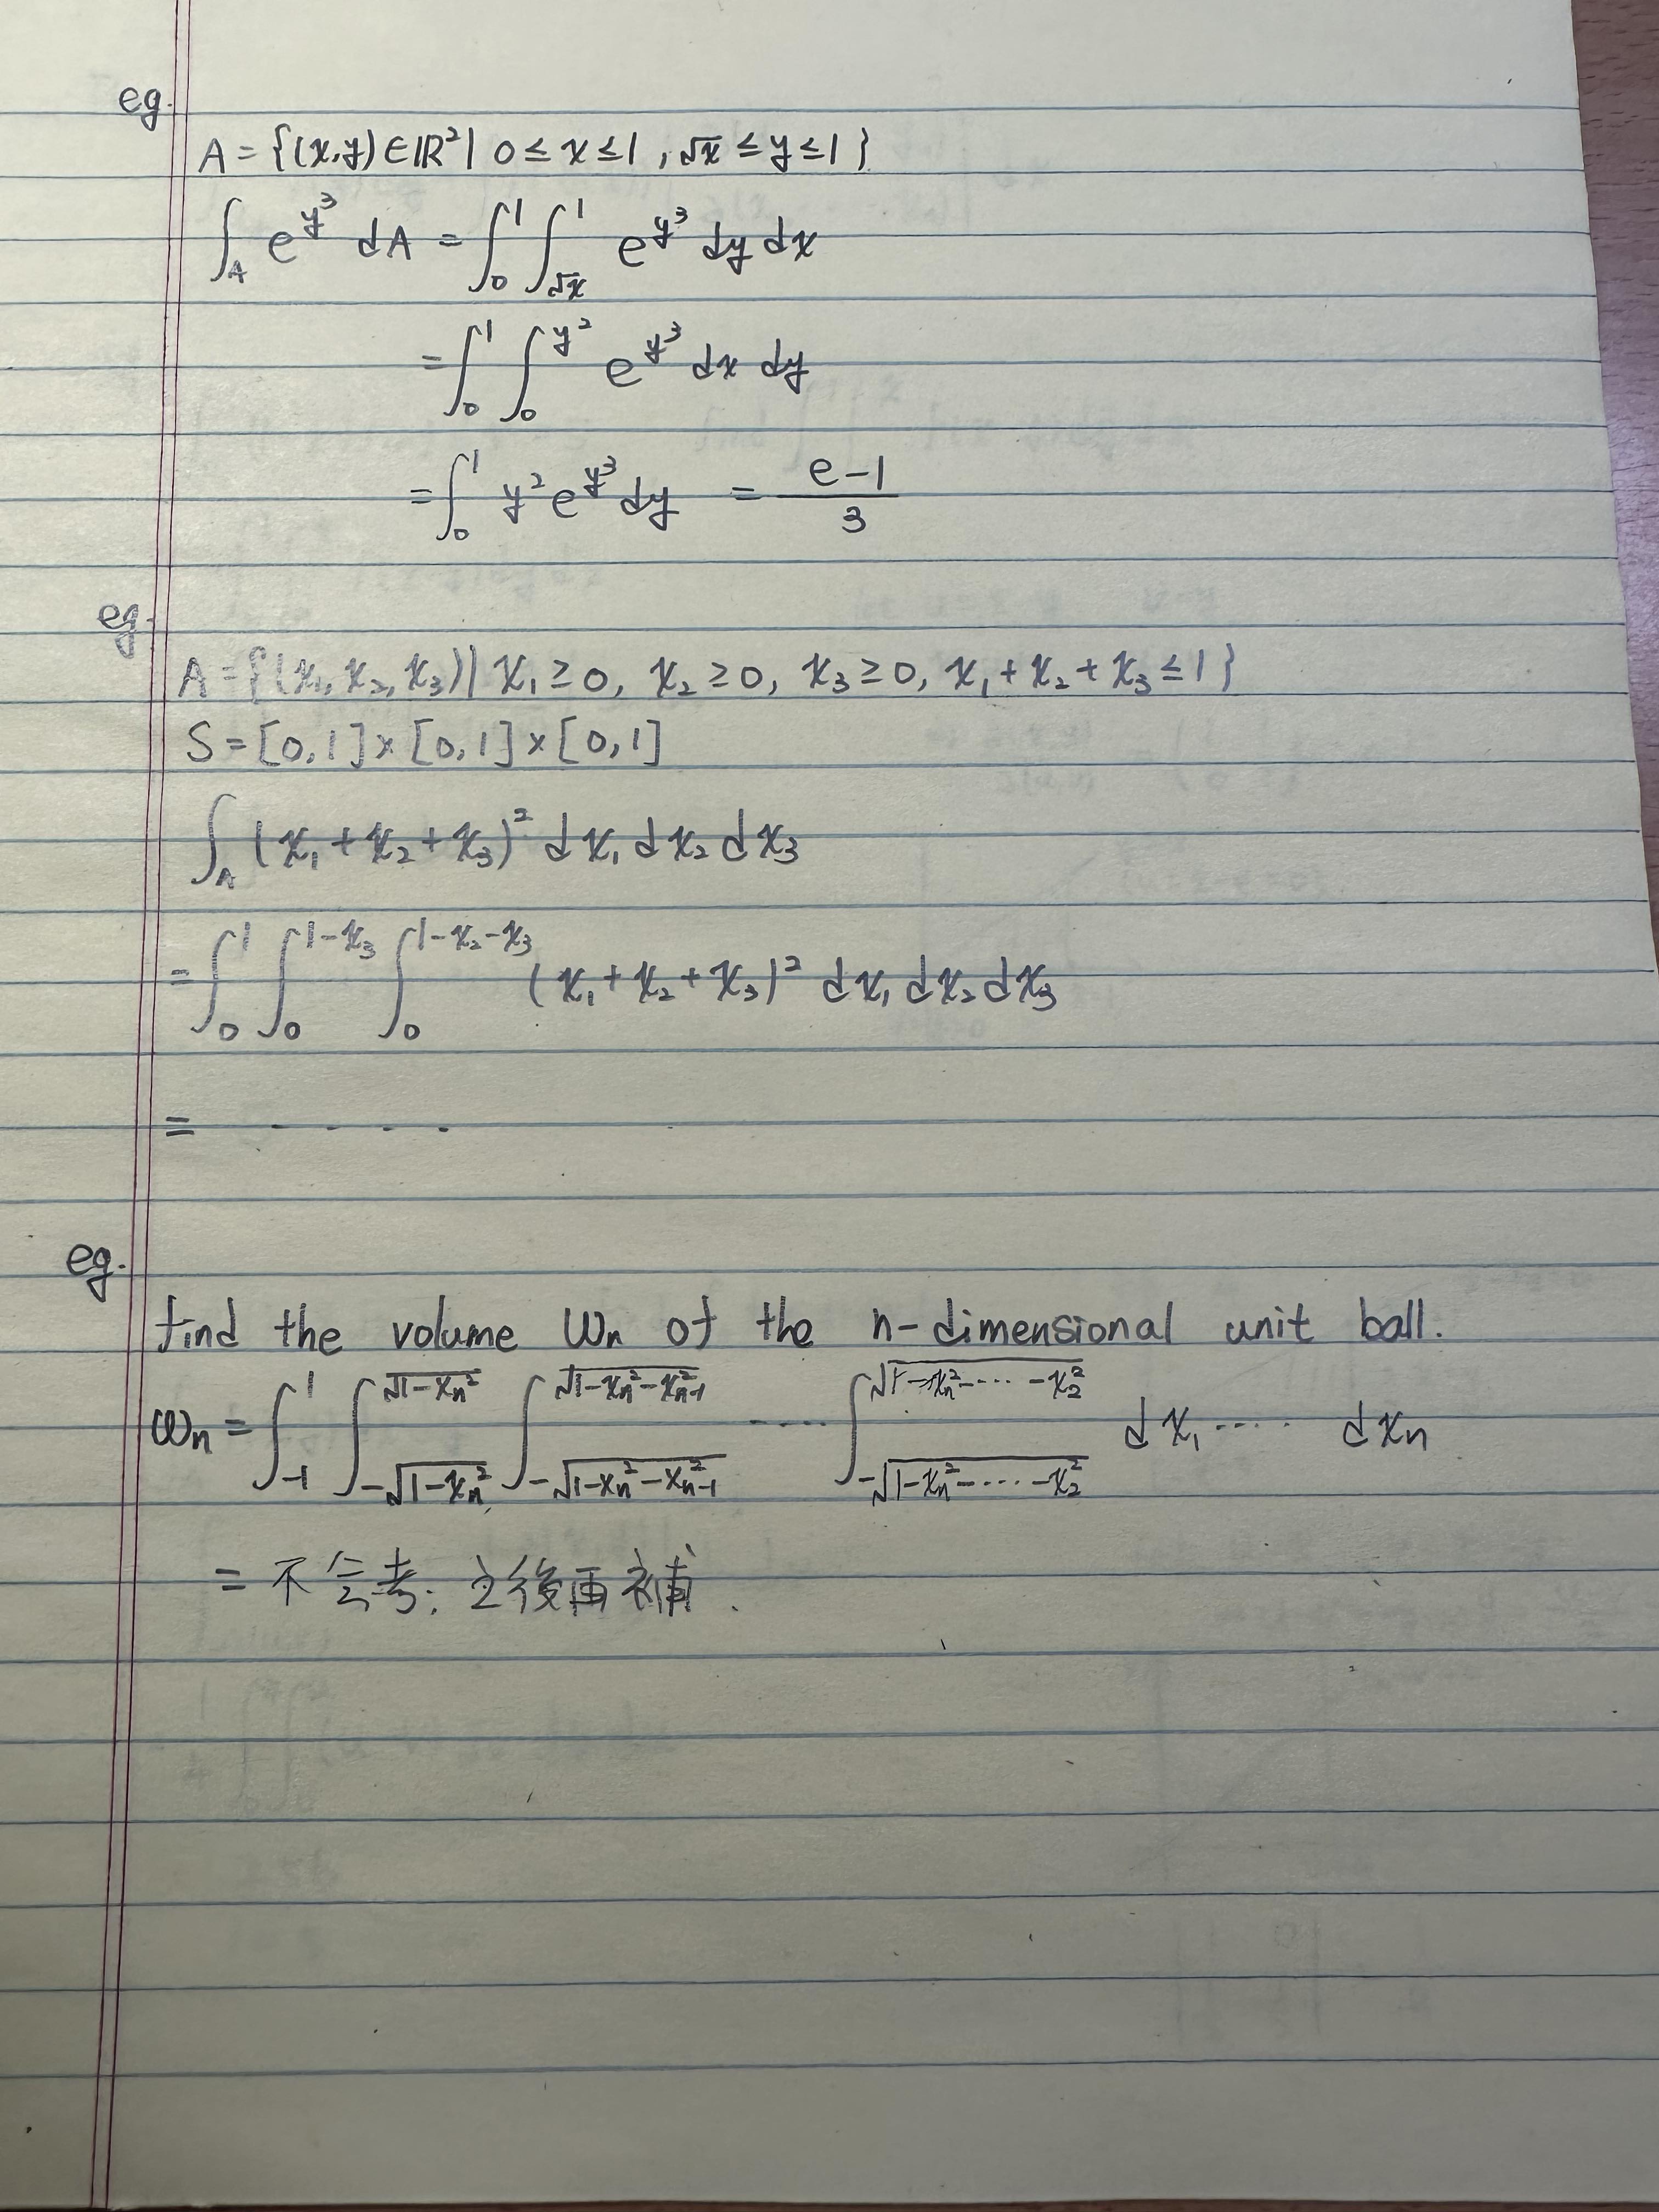 eg.
A = {(x,y) ∈ ℝ² | 0 ≤ x ≤ 1 , √x ≤ y ≤ 1 }
∫_A e^{y³} dA = ∫_0^1 ∫_{√x}^1 e^{y³} dy dx
= ∫_0^1 ∫_0^{y²} e^{y³} dx dy
= ∫_0^1 y² e^{y³} dy = (e-1)/3
eg.
A = {(x₁, x₂, x₃) | x₁ ≥ 0, x₂ ≥ 0, x₃ ≥ 0, x₁ + x₂ + x₃ ≤ 1 }
S = [0,1] × [0,1] × [0,1]
∫_A (x₁ + x₂ + x₃)² dx₁ dx₂ dx₃
= ∫_0^1 ∫_0^{1-x₃} ∫_0^{1-x₂-x₃} (x₁ + x₂ + x₃)² dx₁ dx₂ dx₃
= ‐ ‐ ‐ ‐
eg.
find the volume ωn of the n-dimensional unit ball.
ωn = ∫_{-1}^1 ∫_{-√(1-xn²)}^{√(1-xn²)} ∫_{-√(1-xn²-x_{n-1}²)}^{√(1-xn²-x_{n-1}²)} ‐‐‐‐ ∫_{-√(1-xn²-‐‐‐-x₂²)}^{√(1-xn²-‐‐‐-x₂²)} dx₁ ‐‐‐‐ dxn
= 不会考. 後再補.